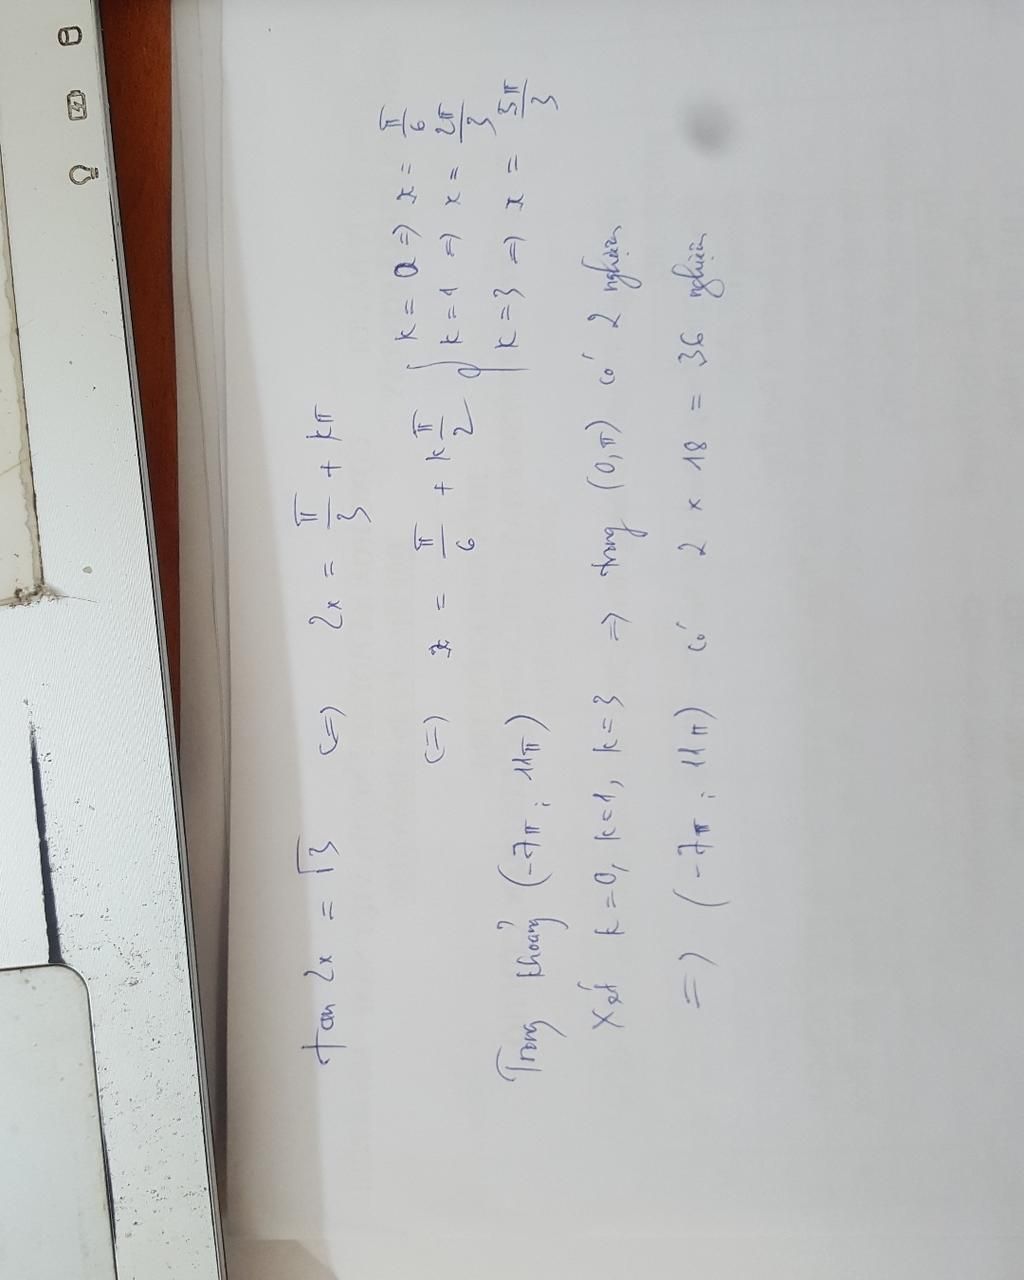 tan 2x = √3 <=> 2x = π/3 + kπ
<=> x = π/6 + k π/2
k = 0 => x = π/6
k = 1 => x = 2π/3
k = 3 => x = 5π/3
Trong khoảng (-7π ; 11π)
Xét k = 0, k = 1, k = 3 => trong (0, π) có 2 nghiệm
=> (-7π ; 11π) có 2 × 18 = 36 nghiệm